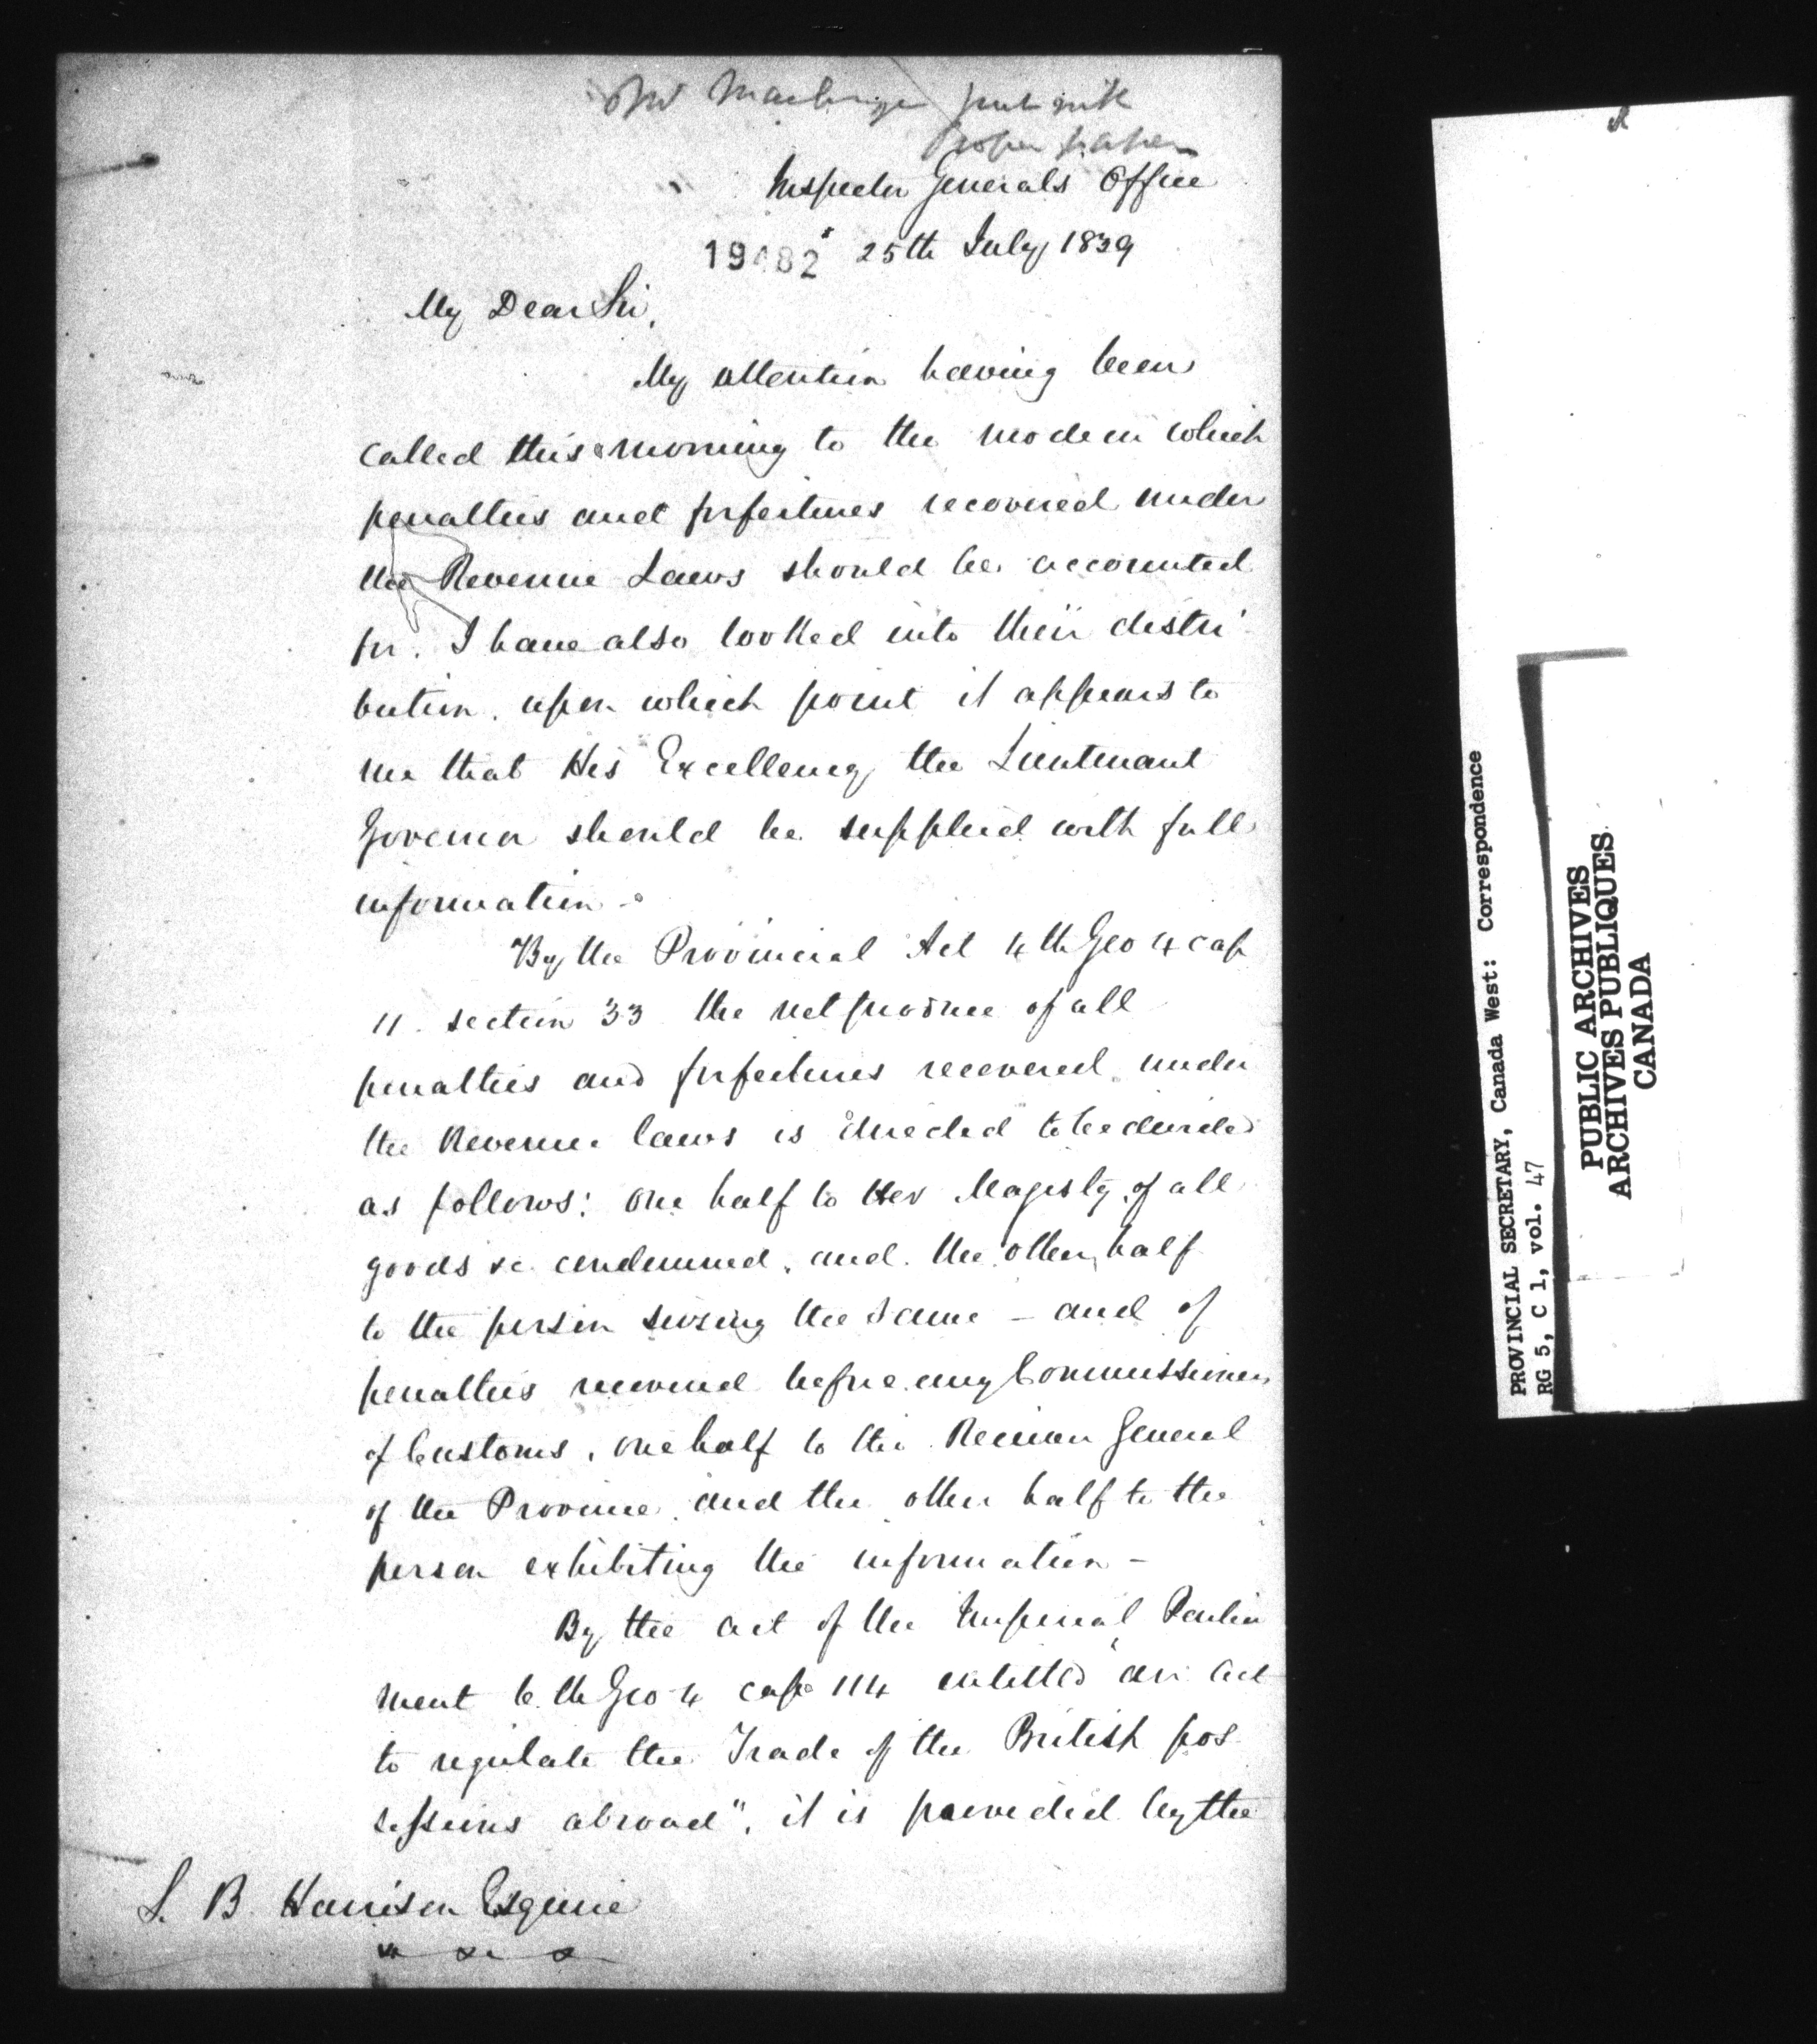 Mr Mackenzie put with
proper papers
Inspector Generals Office
19482 25th July 1839
My Dear Sir,
My attention having been
called this morning to the mode in which
penalties and forfeitures recovered under
the Revenue Laws should be accounted
for. I have also looked into their distri-
bution, upon which point it appears to
me that His Excellency the Lieutenant
Governor should be supplied with full
information -
By the Provincial Act 4th Geo 4 cap
11. section 33 the net produce of all
penalties and forfeitures recovered under
the Revenue laws is directed to be divided
as follows: One half to Her Majesty of all
goods &c condemned, and the other half
to the person seizing the same - and of
penalties recovered before any Commissioner
of Customs, one half to the Receiver General
of the Province, and the other half to the
person exhibiting the information -
By the act of the Imperial Parlia
ment 6th Geo 4 cap 114 entitled "an act
to regulate the Trade of the British pos-
sessions abroad", it is provided by the
S. B. Harrison Esquire
&c &c &c
PROVINCIAL SECRETARY, Canada West: Correspondence
RG 5, C 1, vol. 47
PUBLIC ARCHIVES
ARCHIVES PUBLIQUES
CANADA